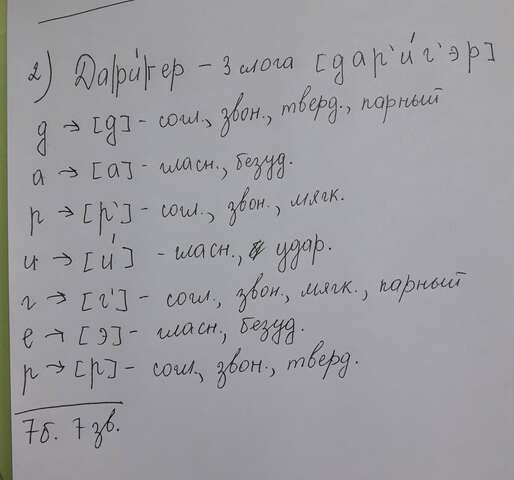 2) Да/ри́/гер – 3 слога [дар'и́г'эр]
д → [д] – согл., звон., тверд., парный
а → [а] – гласн., безуд.
р → [р'] – согл., звон., мягк.
и → [и́] – гласн., удар.
г → [г'] – согл., звон., мягк., парный
е → [э] – гласн., безуд.
р → [р] – согл., звон., тверд.
7б. 7 зв.